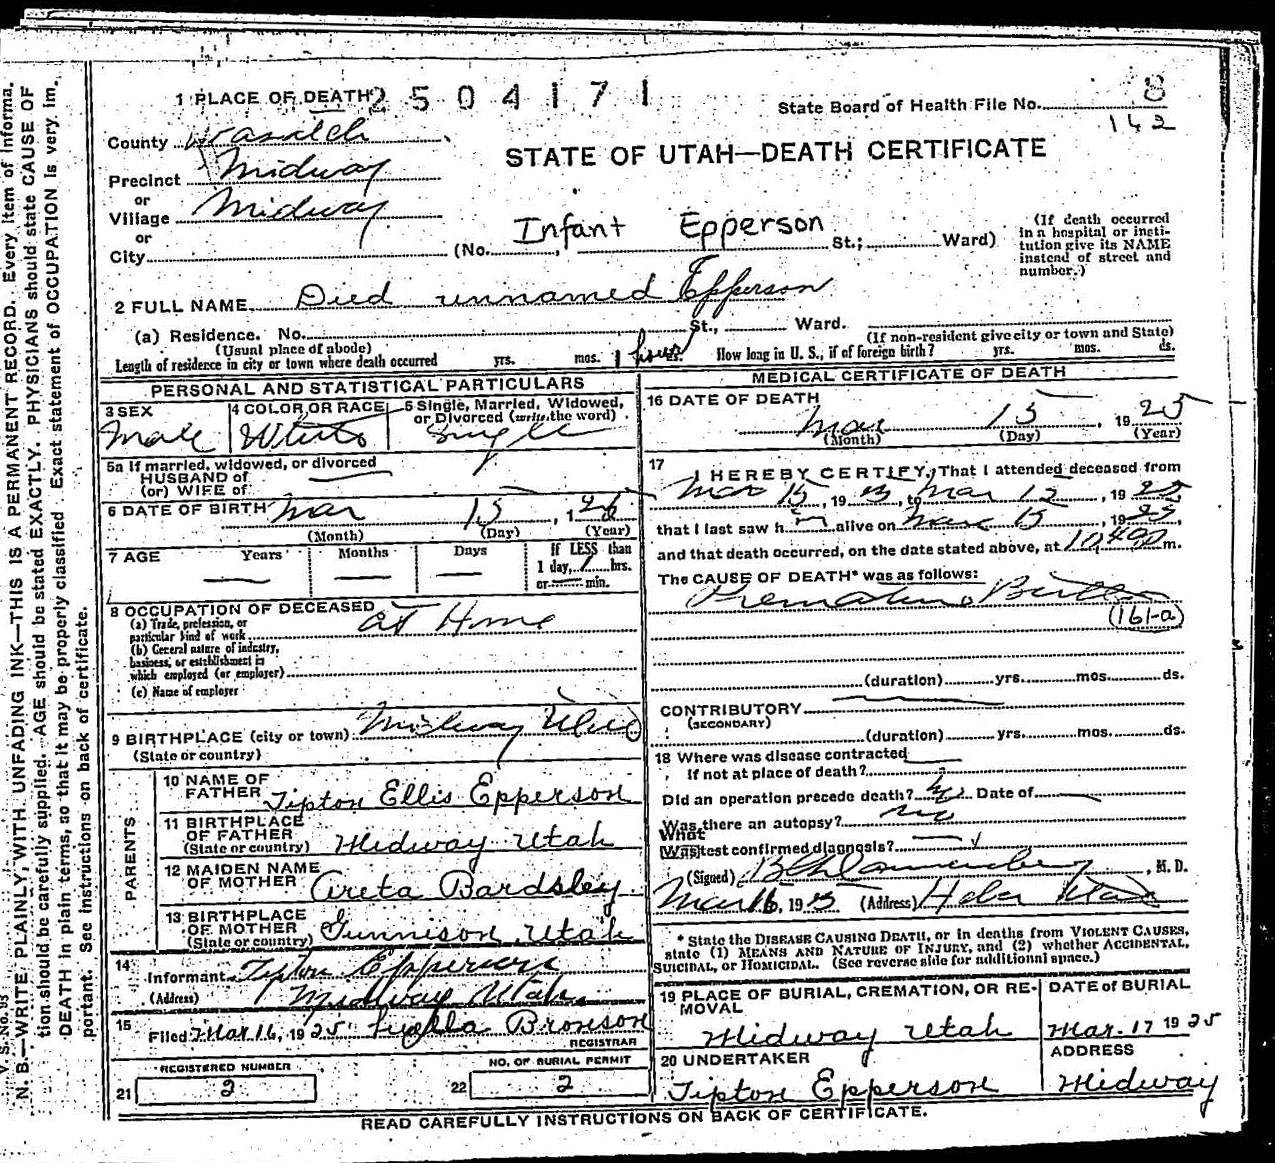 1 PLACE OF DEATH 2504171
State Board of Health File No. 8
142
County Wasatch
STATE OF UTAH—DEATH CERTIFICATE
Precinct Midway
or
Village Midway
or
City
(No. Infant Epperson St.; Ward)
(If death occurred in a hospital or insti-
tution give its NAME instead of street and number.)
2 FULL NAME Died unnamed Epperson
(a) Residence. No. St., Ward.
(Usual place of abode)
(If non-resident give city or town and State)
Length of residence in city or town where death occurred yrs. mos. 1 hour How long in U. S., if of foreign birth? yrs. mos. ds.
PERSONAL AND STATISTICAL PARTICULARS
3 SEX Male
4 COLOR OR RACE White
5 Single, Married, Widowed, or Divorced (write the word) Single
5a If married, widowed, or divorced
HUSBAND of
(or) WIFE of
6 DATE OF BIRTH Mar 15, 1925
(Month) (Day) (Year)
7 AGE Years Months Days If LESS than 1 day, 1 hrs. or min.
8 OCCUPATION OF DECEASED At Home
(a) Trade, profession, or particular kind of work
(b) General nature of industry, business, or establishment in which employed (or employer)
(c) Name of employer
9 BIRTHPLACE (city or town) Midway Utah
(State or country)
PARENTS
10 NAME OF FATHER Tipton Ellis Epperson
11 BIRTHPLACE OF FATHER (State or country) Midway Utah
12 MAIDEN NAME OF MOTHER Areta Bardsley
13 BIRTHPLACE OF MOTHER (State or country) Gunnison, Utah
14 Informant Tipton Epperson
(Address) Midway Utah
15 Filed Mar 16, 1925 Luella Bronson
REGISTRAR
REGISTERED NUMBER
21 2
NO. OF BURIAL PERMIT
22 2
MEDICAL CERTIFICATE OF DEATH
16 DATE OF DEATH
Mar 15, 1925
(Month) (Day) (Year)
17 I HEREBY CERTIFY, That I attended deceased from
Mar 15, 1925, to Mar 15, 1925
that I last saw him alive on Mar 15, 1925,
and that death occurred, on the date stated above, at m.
The CAUSE OF DEATH* was as follows:
Premature Birth
(161-a)
(duration) yrs. mos. ds.
CONTRIBUTORY
(SECONDARY)
(duration) yrs. mos. ds.
18 Where was disease contracted
If not at place of death?
Did an operation precede death? No Date of
Was there an autopsy? No
What
Was test confirmed diagnosis?
(Signed) , M. D.
Mar 16, 1925 (Address) Heber Utah
* State the DISEASE CAUSING DEATH, or in deaths from VIOLENT CAUSES,
state (1) MEANS AND NATURE OF INJURY, and (2) whether ACCIDENTAL,
SUICIDAL, or HOMICIDAL. (See reverse side for additional space.)
19 PLACE OF BURIAL, CREMATION, OR RE-
MOVAL
Midway Utah
DATE of BURIAL
Mar. 17 1925
20 UNDERTAKER
Tipton Epperson
ADDRESS
Midway
READ CAREFULLY INSTRUCTIONS ON BACK OF CERTIFICATE.
N. B.—WRITE PLAINLY, WITH UNFADING INK—THIS IS A PERMANENT RECORD. Every item of informa-
tion should be carefully supplied. AGE should be stated EXACTLY. PHYSICIANS should state CAUSE OF
DEATH in plain terms, so that it may be properly classified. Exact statement of OCCUPATION is very im-
portant. See instructions on back of certificate.